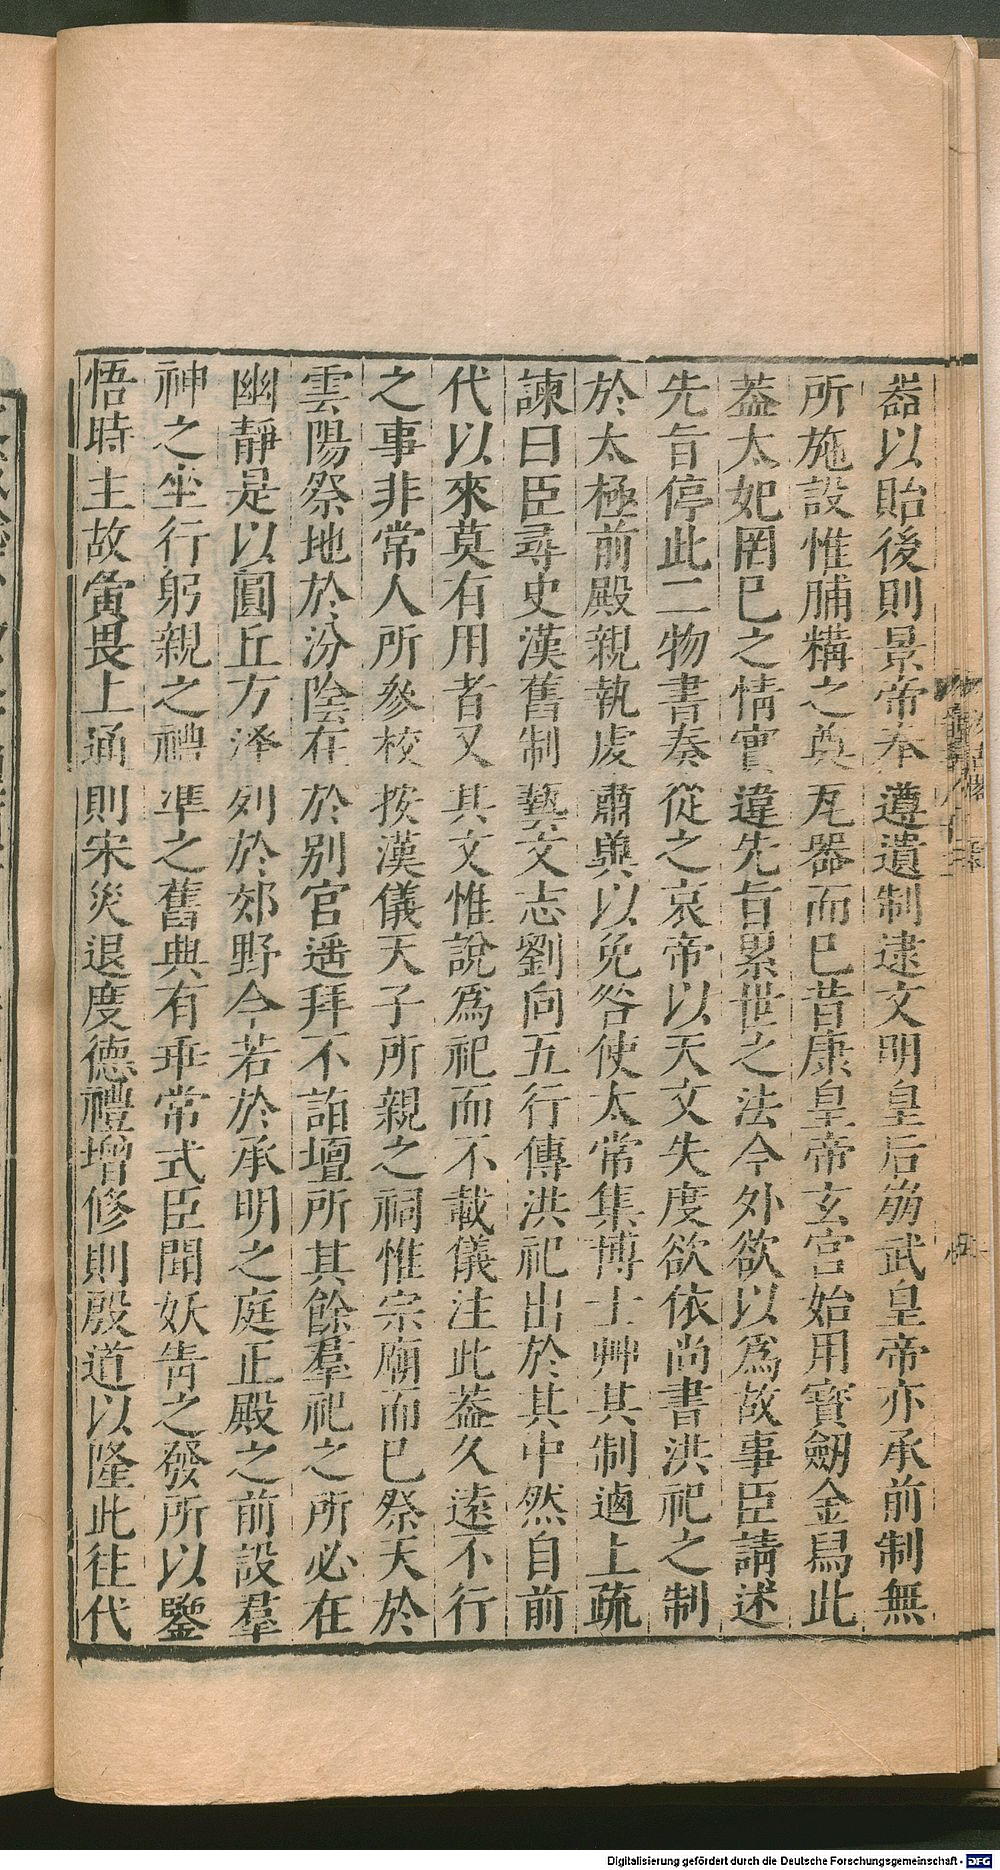 器以貽後則景帝奉遵遺制逮文明皇后崩武皇帝亦承前制無
所施設惟脯糒之奠瓦器而已昔康皇帝玄宮始用寶劒金舄此
葢太妃罔已之情實違先旨累世之法今外欲以爲故事臣請述
先旨停此二物書奏從之哀帝以天文失度欲依尚書洪祀之制
於太極前殿親執虔肅兾以免咎使太常集博士艸其制逌上疏
諫曰臣尋史漢舊制藝文志劉向五行傳洪祀出於其中然自前
代以來莫有用者又其文惟說爲祀而不載儀注此葢久遠不行
之事非常人所參校按漢儀天子所親之祠惟宗廟而已祭天於
雲陽祭地於汾陰在於别宮遥拜不詣壇所其餘羣祀之所必在
幽靜是以圓丘方澤列於郊野今若於承明之庭正殿之前設羣
神之坐行躬親之禮凖之舊典有乖常式臣聞妖眚之發所以鑒
悟時主故夤畏上通則宋災退度德禮增修則殷道以隆此往代
Digitalisierung gefördert durch die Deutsche Forschungsgemeinschaft - DFG